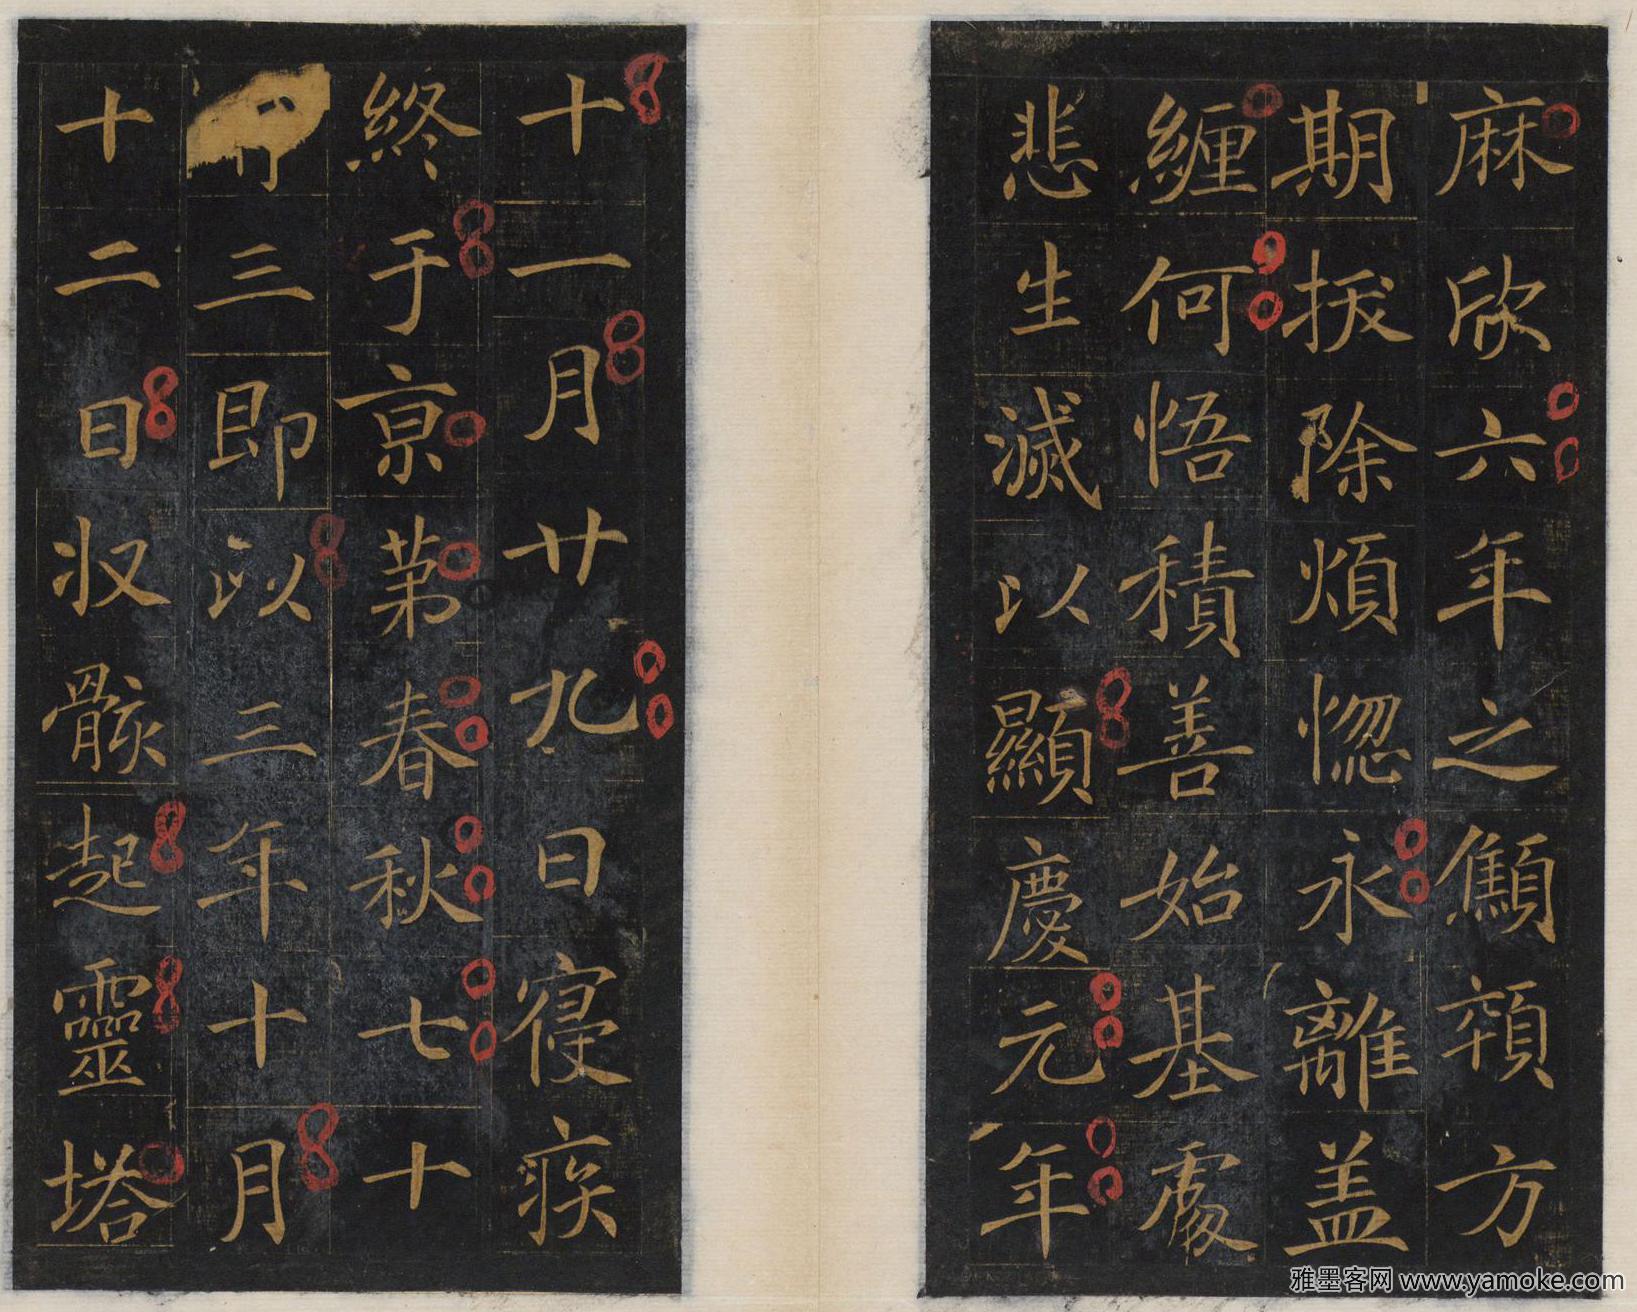 麻欣六年之顦顇方
期拔除煩惱永離盖
纏何悟積善始基處
悲生滅以顯慶元年
十一月廿九日寢疾
終于京第春秋七十
三即以三年十月
十二日收骸起靈塔
雅墨客网 www.yamoke.com